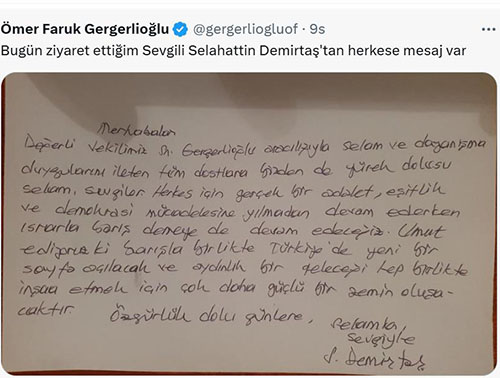 Ömer Faruk Gergerlioğlu @gergerliogluof · 9s
Bugün ziyaret ettiğim Sevgili Selahattin Demirtaş'tan herkese mesaj var
Merhabalar
Değerli Vekilimiz Sn. Gergerlioğlu aracılığıyla selam ve dayanışma
duygularını ileten tüm dostlara bizden de yürek dolusu
selam, sevgiler. Herkes için gerçek bir adalet, eşitlik
ve demokrasi mücadelesine yılmadan devam ederken
ısrarla barış demeye de devam edeceğiz. Umut
ediyoruz ki barışla birlikte Türkiye'de yeni bir
sayfa açılacak ve aydınlık bir geleceği hep birlikte
inşaa etmek için çok daha güçlü bir zemin oluşa-
caktır.
Özgürlük dolu günlere,
Selamla,
Sevgiyle
S. Demirtaş